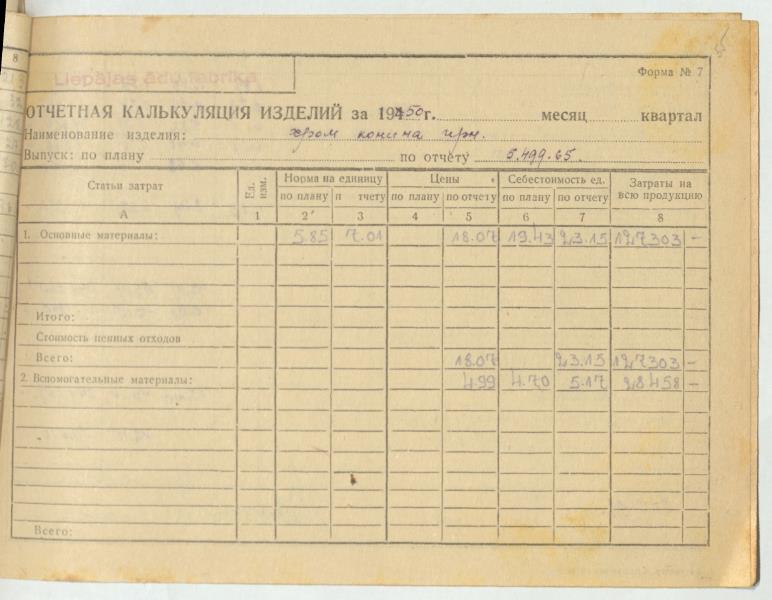 8
Liepājas ādu fabrika
Форма № 7
ОТЧЕТНАЯ КАЛЬКУЛЯЦИЯ ИЗДЕЛИЙ за 1950 г. месяц квартал
Наименование изделия: хром конина
Выпуск: по плану по отчету 5.499.65.
Статьи затрат Ед. изм. Норма на единицу Цены Себестоимость ед. Затраты на всю продукцию
по плану п тчету по плану по отчету по плану по отчету
А 1 2 3 4 5 6 7 8
1. Основные материалы: 5.85 7.01 18.07 19.43 23.15 127303 –
Итого:
Стоимость ценных отходов
Всего: 18.07 23.15 127303 –
2. Вспомогательные материалы: 4.99 4.70 5.17 28458 –
Всего: